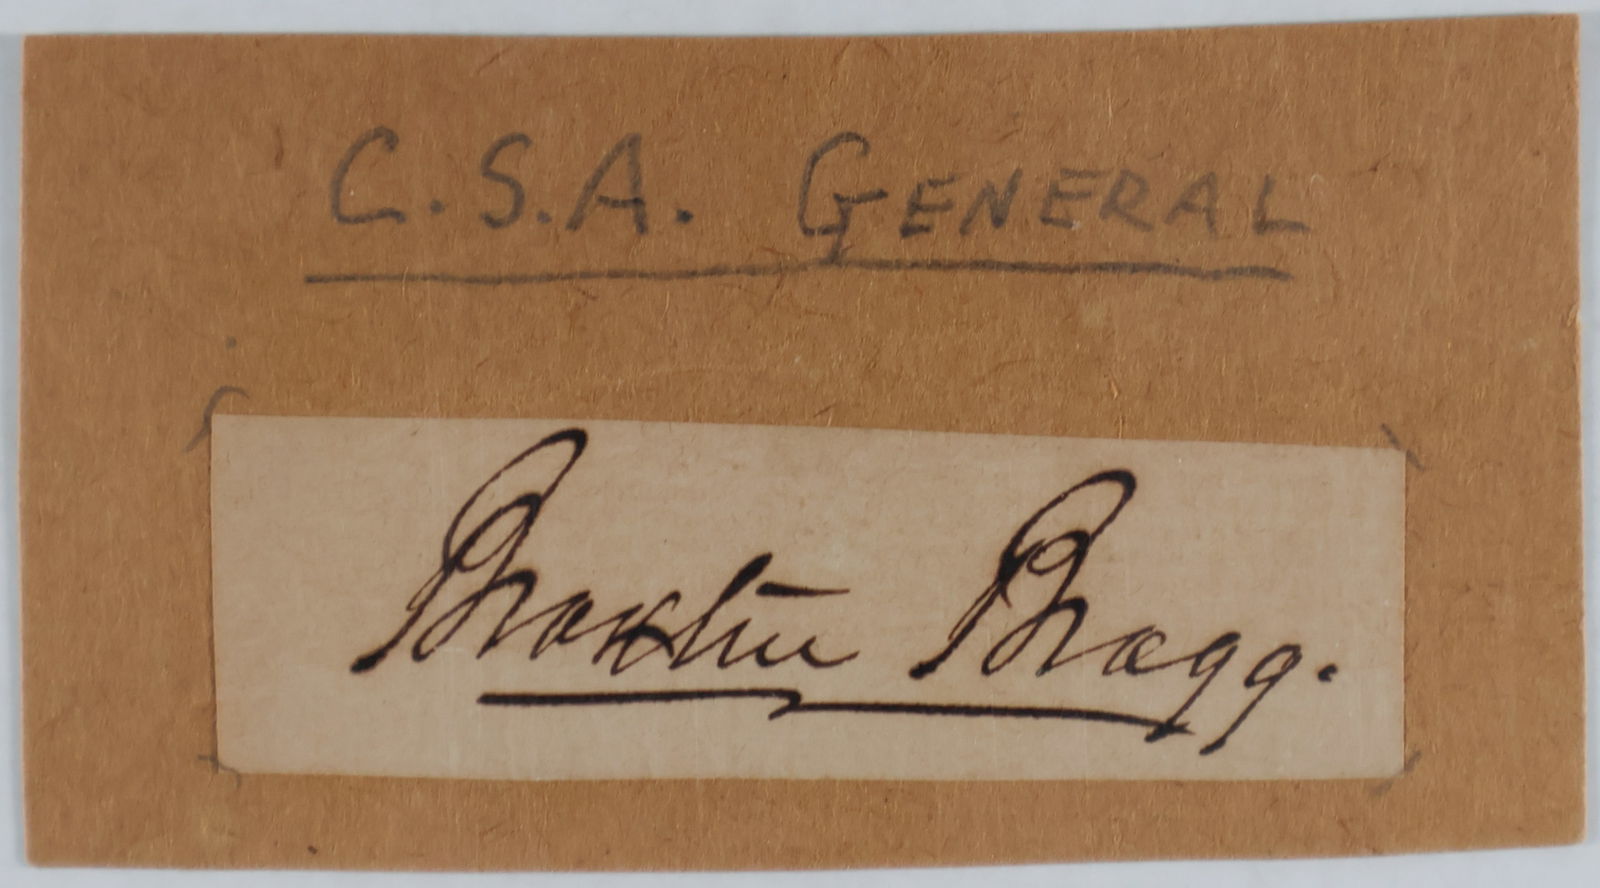 C.S.A. General
Braxton Bragg.